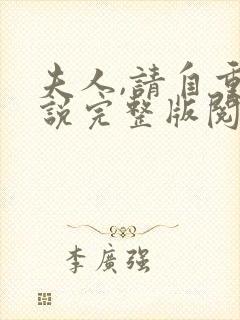 夫人,請自重
說完整版閱
李廣强